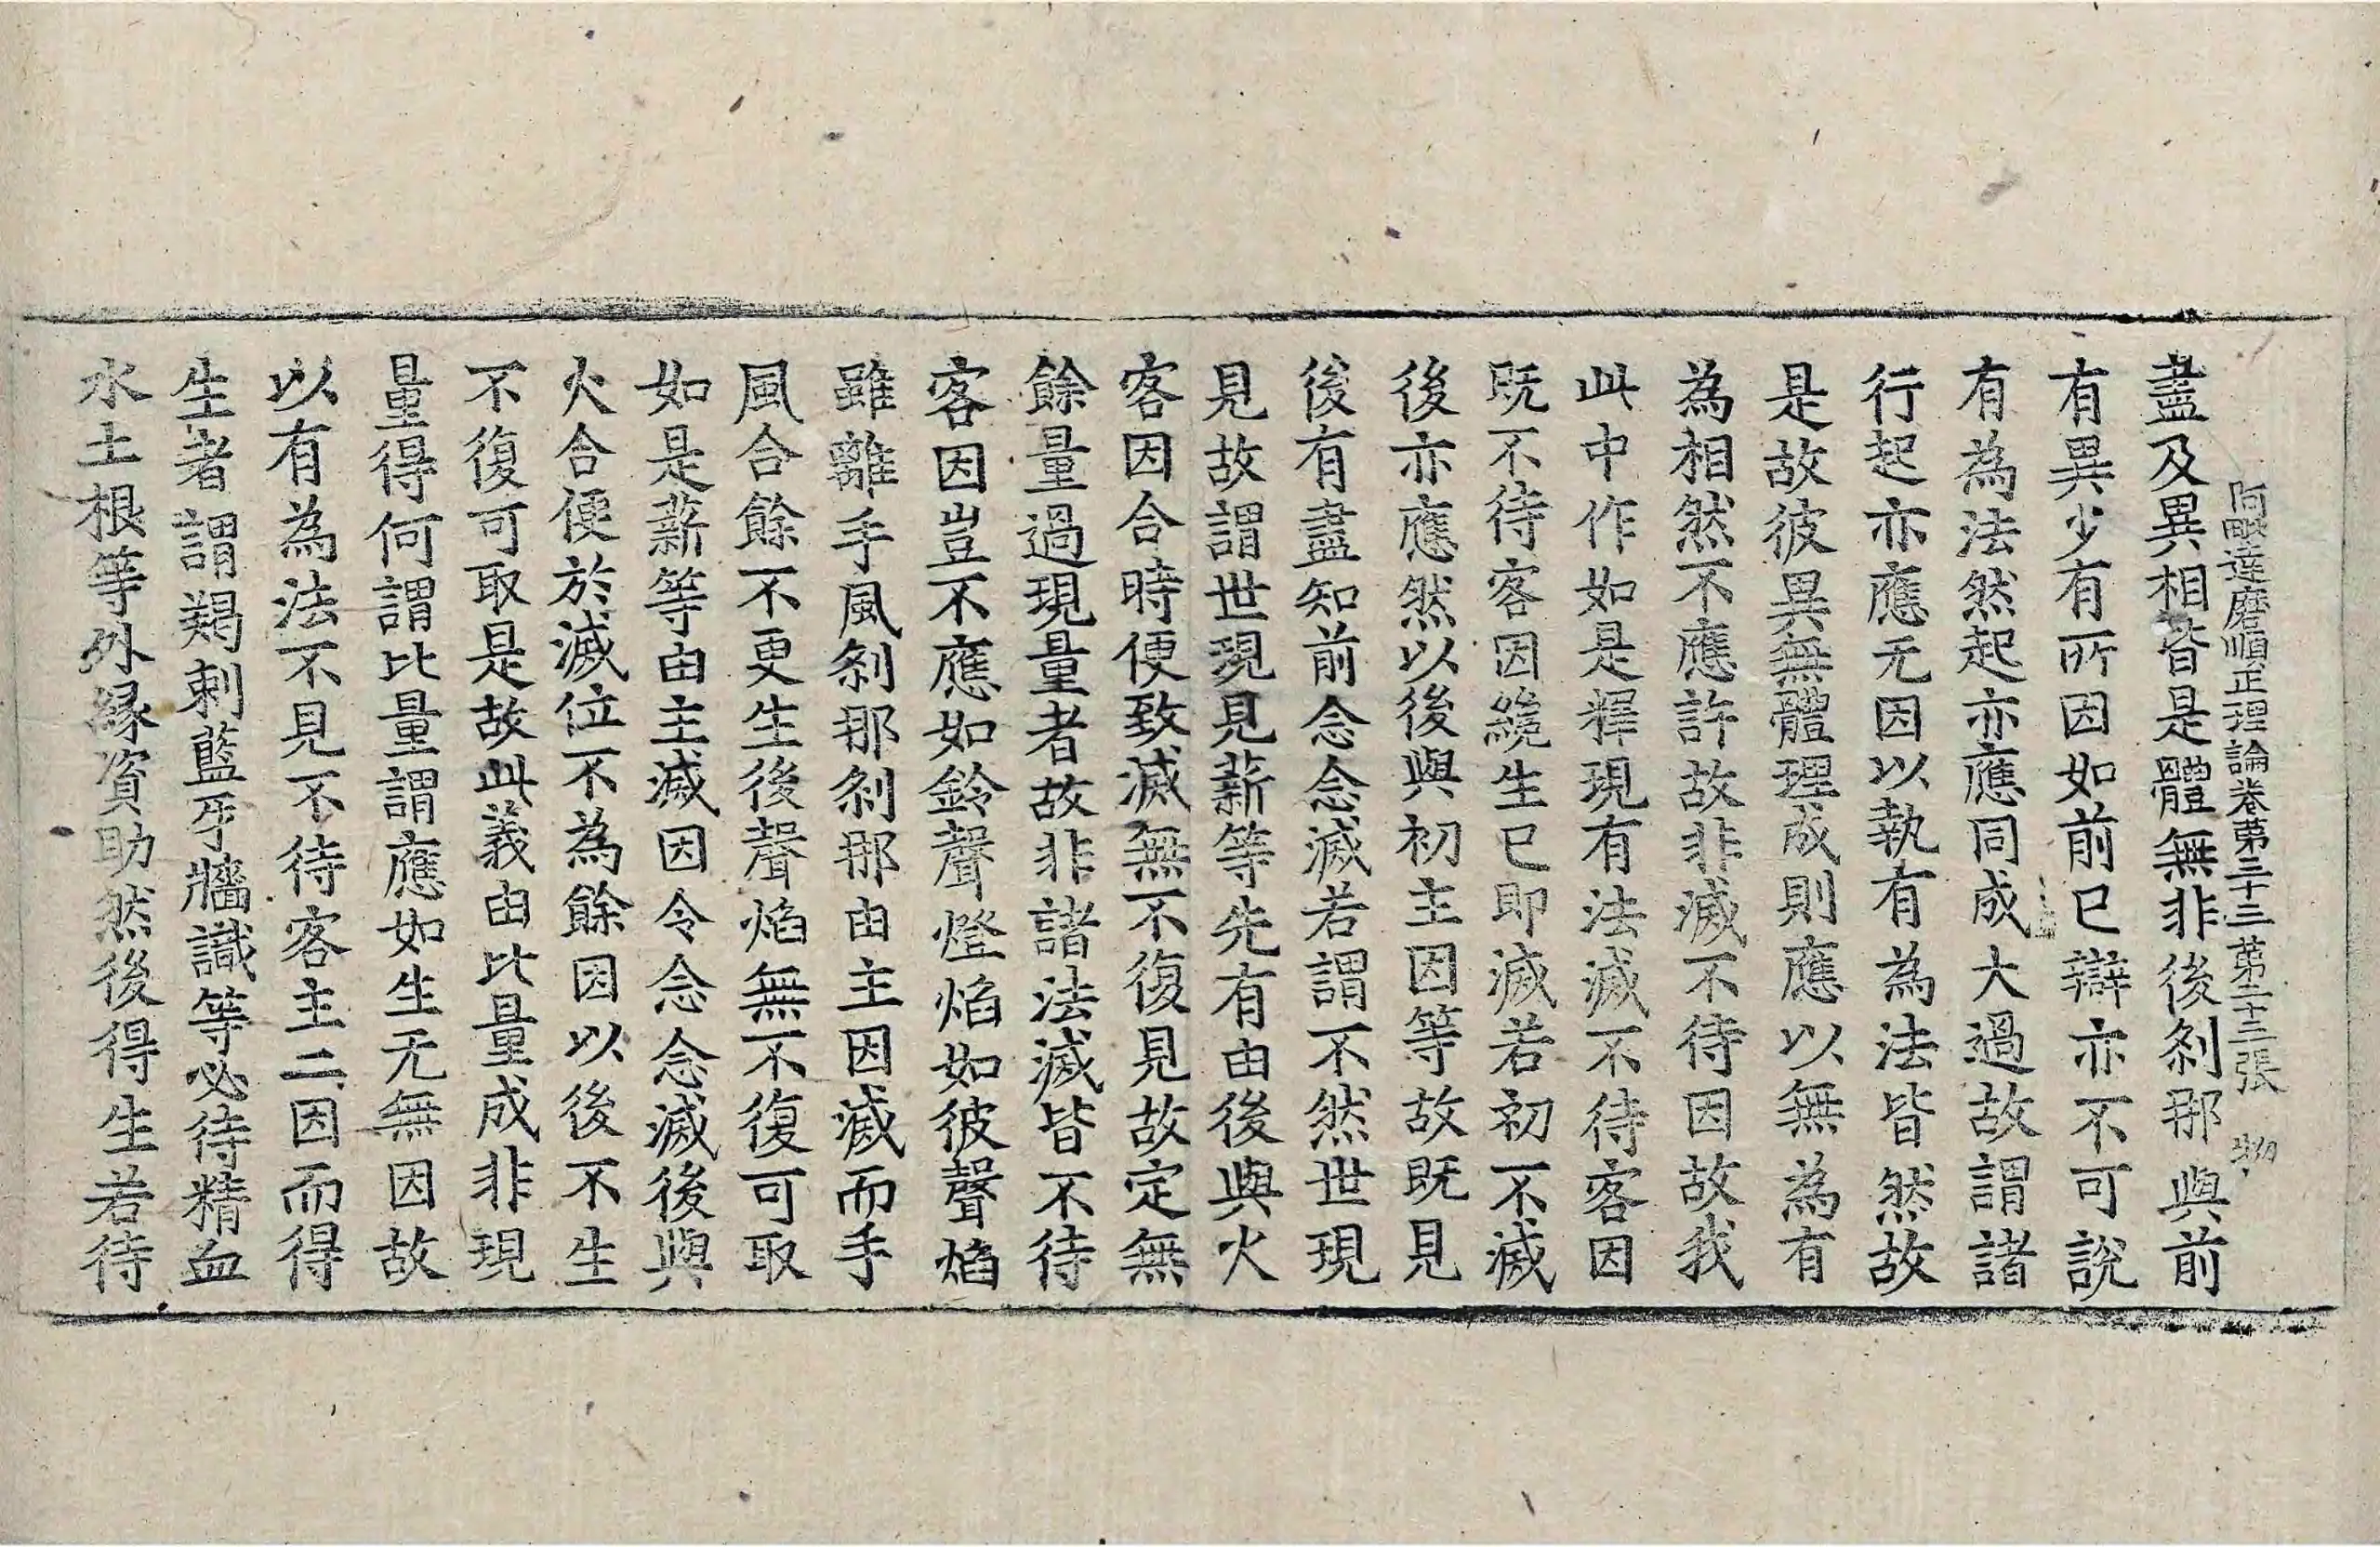 阿毗達磨順正理論卷第三十三 第二十三張 物
盡及異相皆是體無非後剎那與前
有異少有所因如前已辯亦不可說
有為法然起亦應同成大過故謂諸
行起亦應无因以執有為法皆然故
是故彼異無體理成則應以無為有
為相然不應許故非滅不待因故我
此中作如是釋現有法滅不待客因
既不待客因纔生已即滅若初不滅
後亦應然以後與初主因等故既見
後有盡知前念念滅若謂不然世現
見故謂世現見薪等先有由後與火
客因合時便致滅無不復見故定無
餘量過現量者故非諸法滅皆不待
客因豈不應如鈴聲燈焰如彼聲焰
雖離手風剎那剎那由主因滅而手
風合餘不更生後聲焰無不復可取
如是薪等由主滅因令念念滅後與
火合便於滅位不為餘因以後不生
不復可取是故此義由比量成非現
量得何謂比量謂應如生无無因故
以有為法不見不待客主二因而得
生者謂羯剌藍牙牆識等必待精血
水土根等外緣資助然後得生若待